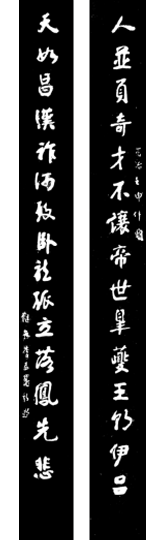 人並負奇才不讓帝世皋夔王朝伊呂
天如昌漢祚何致臥龍孤立落鳳先悲